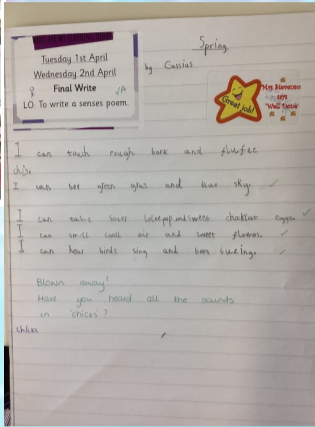 Tuesday 1st April
Wednesday 2nd April
Final Write
LO: To write a senses poem.
Spring
by Cassius
Great job!
Mrs
says
"Well Done"
I can touch rough bark and
chis.
I can see green gras and blue sky.
I can taste sower and sweet choklat eggs.
I can smell cooll air and sweet flowers.
I can hear birds sing and bees
Blown away!
Have you heard all the sounds
in 'chicks'?
chicks